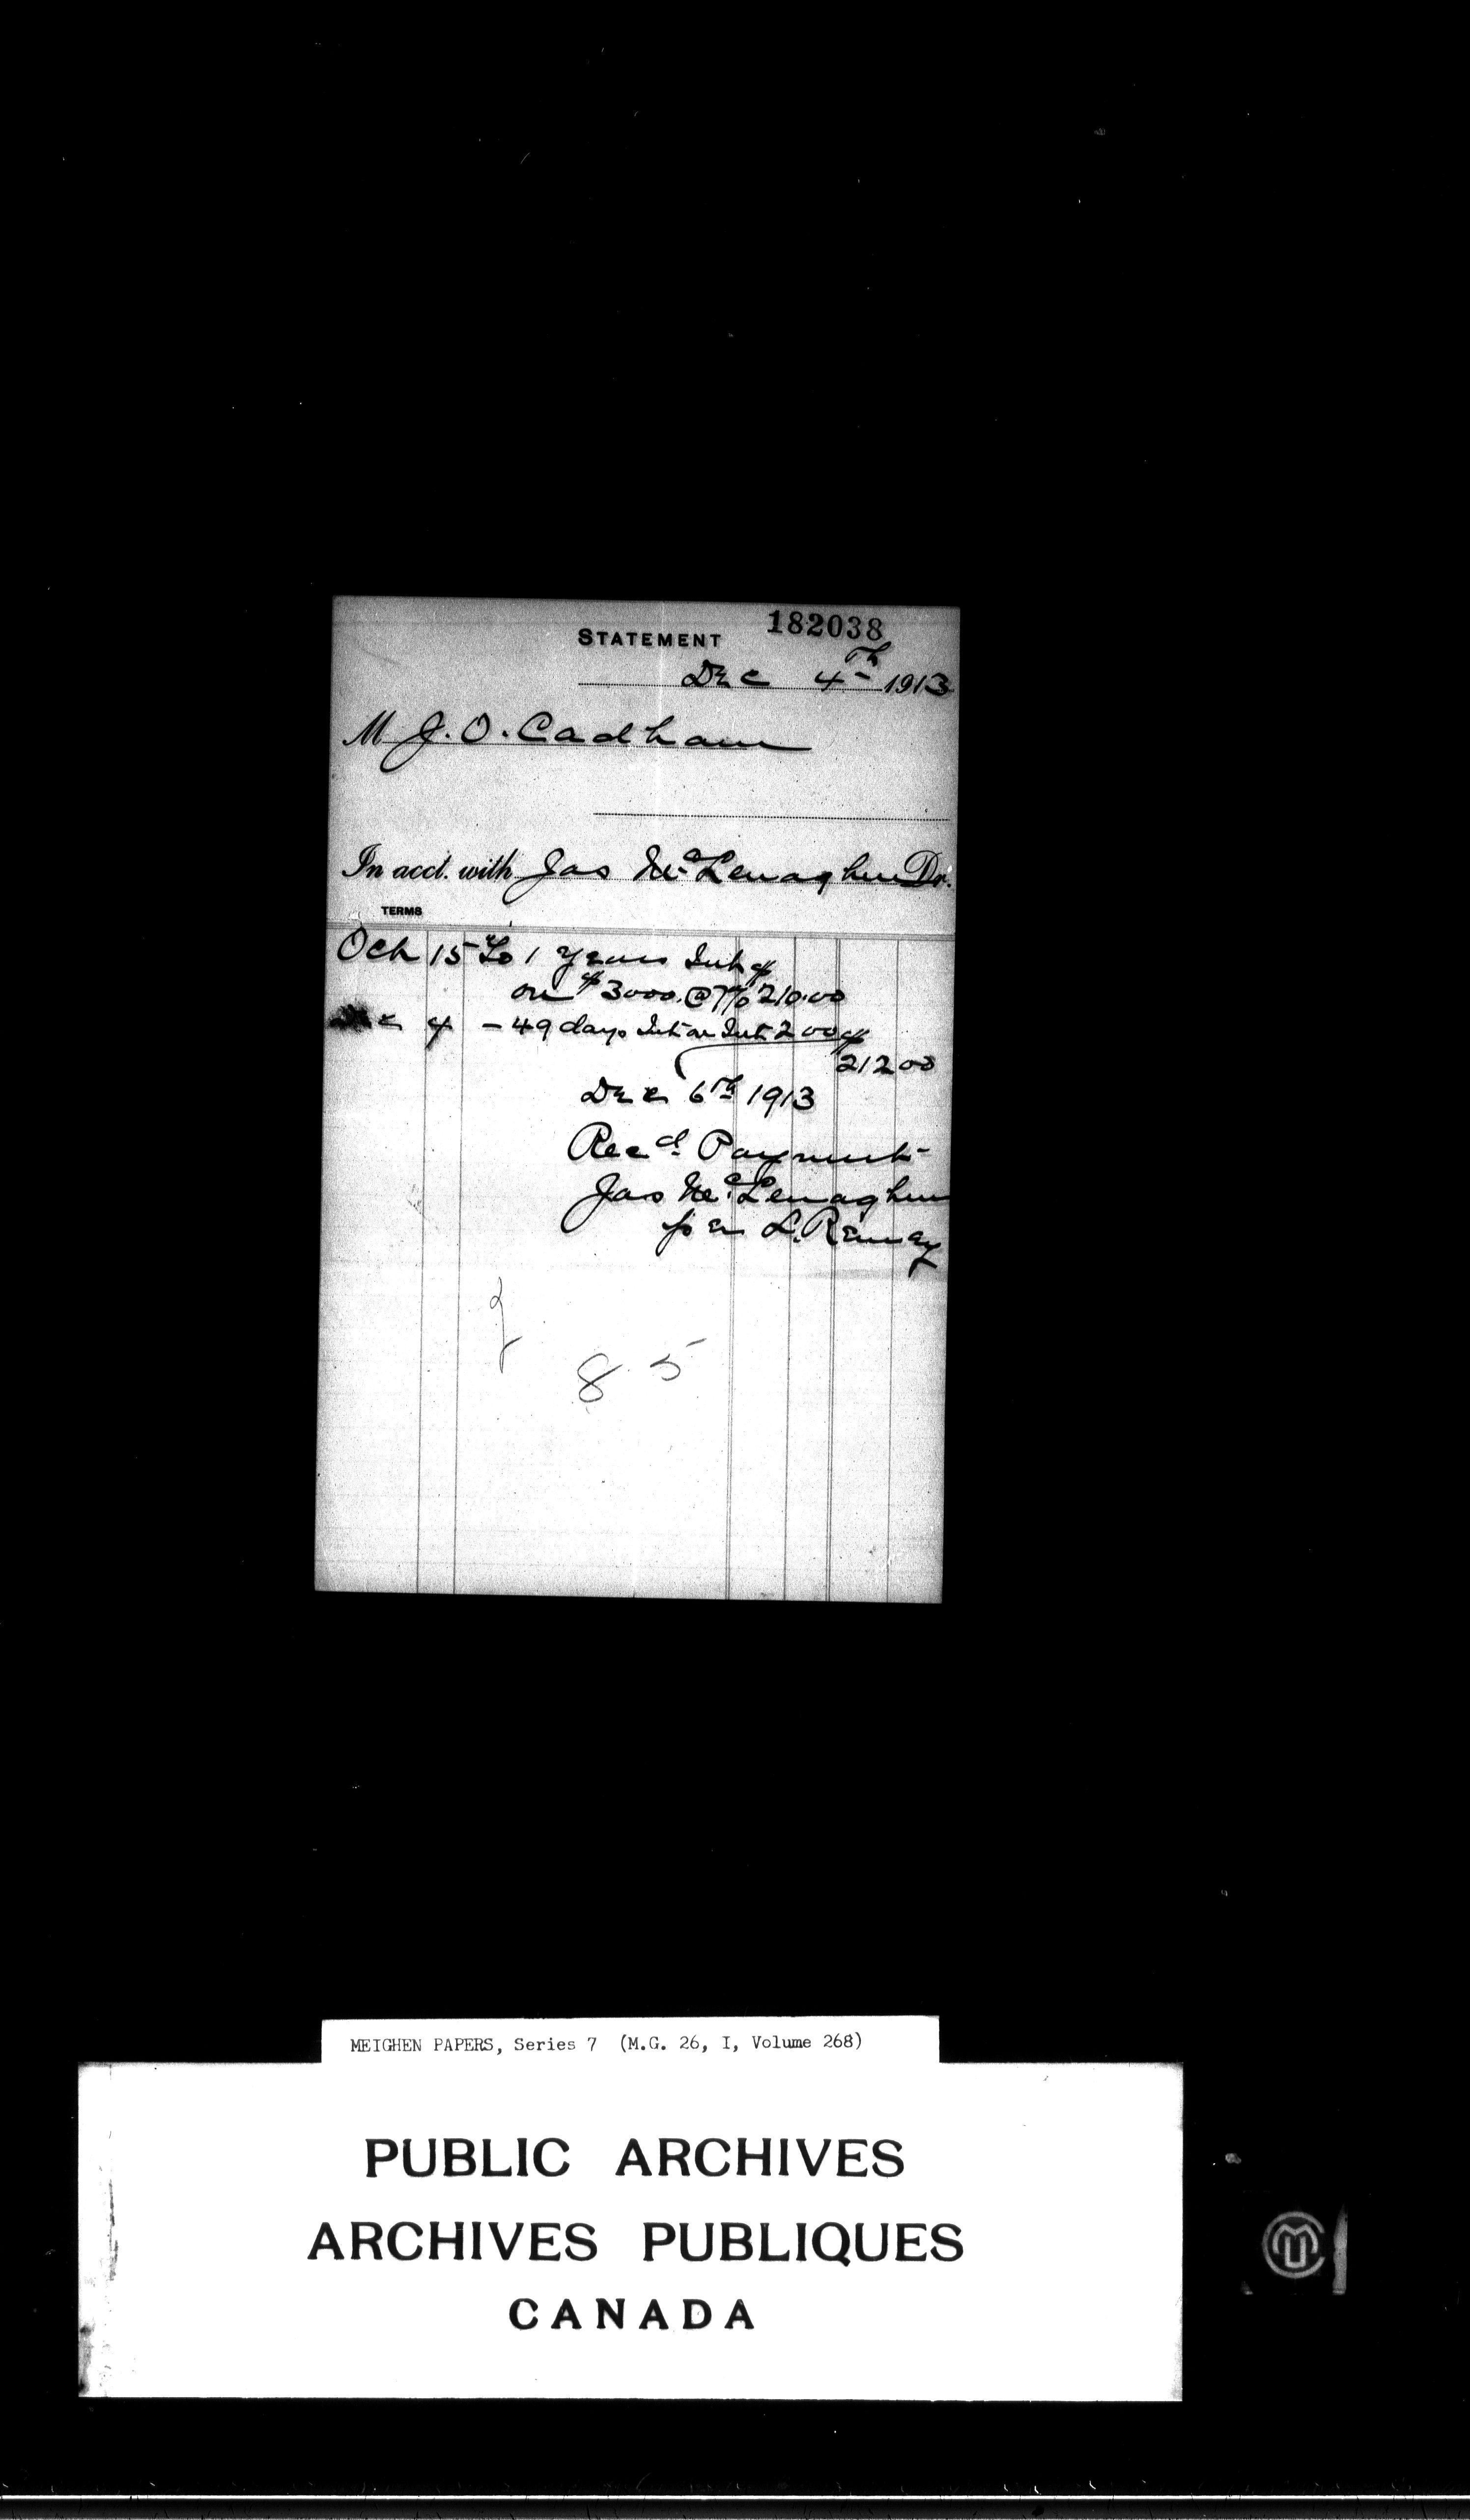 182038
STATEMENT
Dec 4th 1913
M J. O. Cadham
In acct. with Jas McLenaghen Dr.
TERMS
Oct 15 To 1 years Int
on $3000. @ 7% 210.00
Dec 4 - 49 days Int on Int 2 00
212 00
Dec 6th 1913
Recd. Payment
Jas McLenaghen
per L. Ramey
8 5
MEIGHEN PAPERS, Series 7 (M.G. 26, I, Volume 268)
PUBLIC ARCHIVES
ARCHIVES PUBLIQUES
CANADA